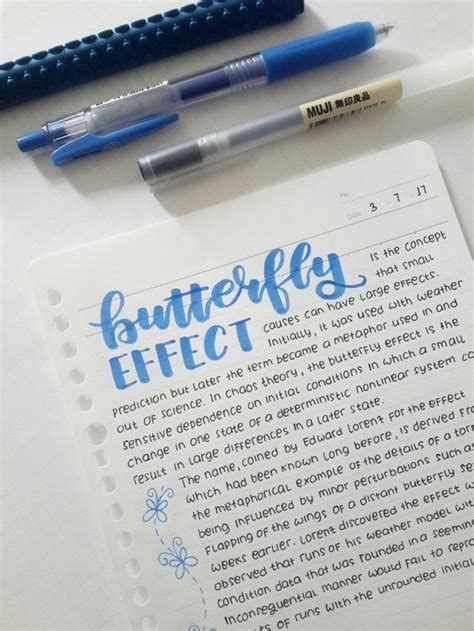 MUJI 無印良品
No.
Date 3 . 7 . 17
butterfly EFFECT
is the concept
that small
causes can have large effects.
Initially, it was used with weather
prediction but later the term became a metaphor used in and
out of science. In chaos theory, the butterfly effect is the
sensitive dependence on initial conditions in which a small
change in one state of a deterministic nonlinear system ca
result in large differences in a later state.
The name, coined by Edward Lorent for the effect
which had been known long before, is derived from
the metaphorical example of the details of a torn
being influenced by minor perturbations such as
flapping of the wings of a distant butterfly se
weeks earlier. Lorent discovered the effect w
observed that runs of his weather model wit
condition data that was rounded in a seemin
inconsequential manner would fail to repro
of runs with the unrounded initial